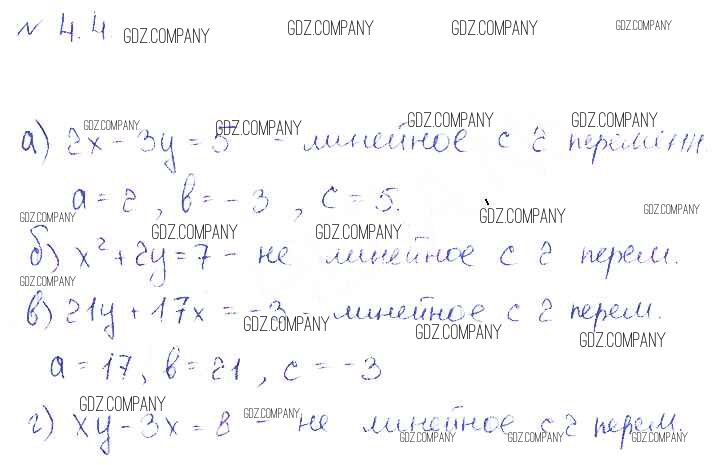 № 4.4.
GDZ.COMPANY GDZ.COMPANY GDZ.COMPANY GDZ.COMPANY
GDZ.COMPANY GDZ.COMPANY GDZ.COMPANY GDZ.COMPANY
а) 2x - 3y = 5 - линейное с 2 переменн.
a = 2, в = -3, c = 5.
GDZ.COMPANY GDZ.COMPANY GDZ.COMPANY
GDZ.COMPANY GDZ.COMPANY
б) x² + 2y = 7 - не линейное с 2 перем.
GDZ.COMPANY
в) 21y + 17x = -3 - линейное с 2 перем.
GDZ.COMPANY GDZ.COMPANY GDZ.COMPANY
a = 17, в = 21, c = -3
GDZ.COMPANY GDZ.COMPANY
г) xy - 3x = 8 - не линейное с 2 перем.
GDZ.COMPANY GDZ.COMPANY GDZ.COMPANY